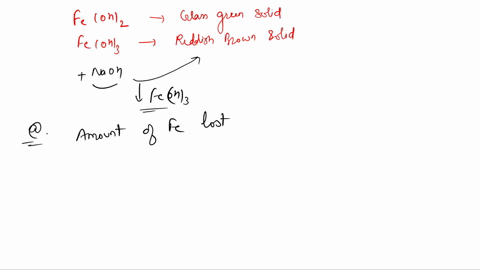 Fe(OH)2 → Clean green solid
Fe(OH)3 → Reddish Brown Solid
+ NaOH
↓ Fe(OH)3
@. Amount of Fe lost